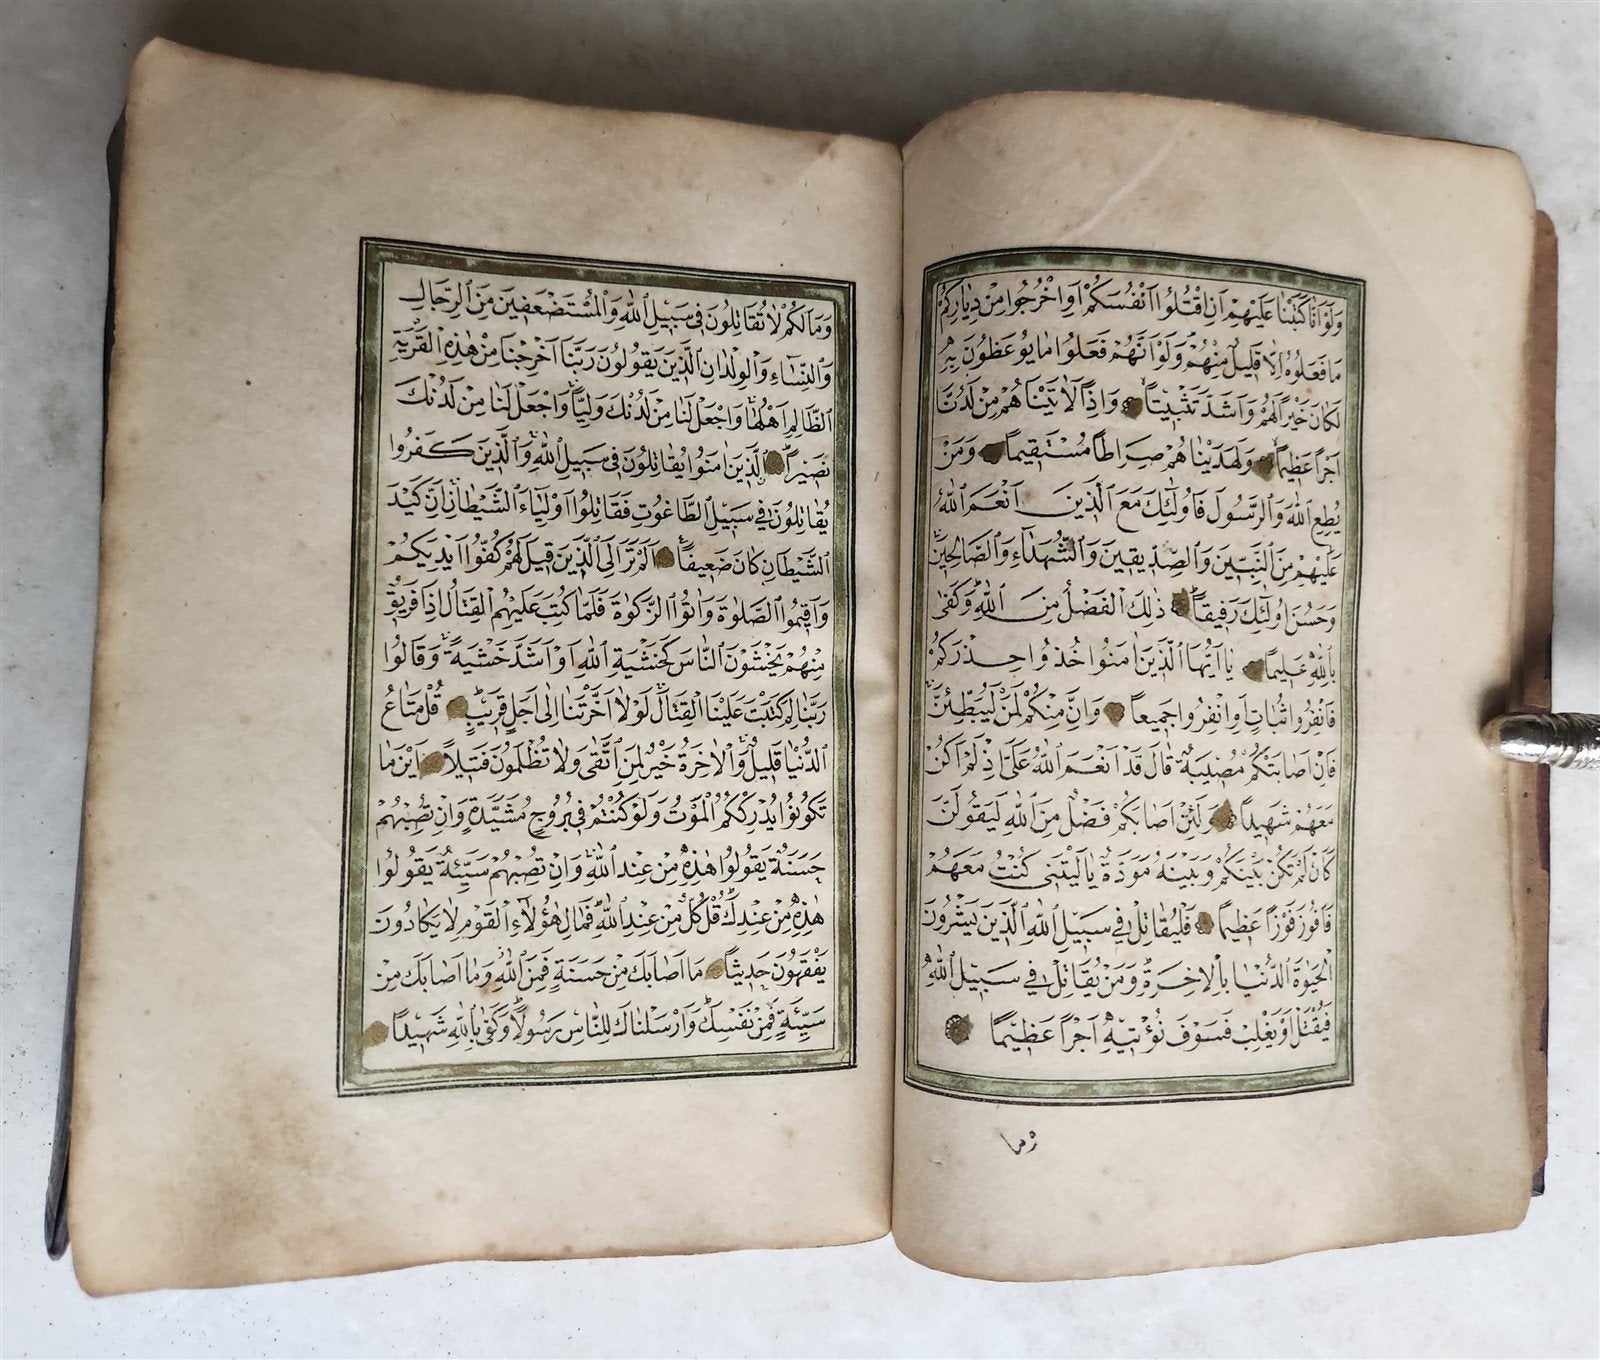 وَلَوْ اَنَّا كَتَبْنَا عَلَيْهِمْ اَنِ اقْتُلُوا اَنْفُسَكُمْ اَوِ اخْرُجُوا مِنْ دِيَارِكُمْ
مَا فَعَلُوهُ اِلَّا قَلِيلٌ مِنْهُمْ وَلَوْ اَنَّهُمْ فَعَلُوا مَا يُوعَظُونَ بِهِ
لَكَانَ خَيْرًا لَهُمْ وَاَشَدَّ تَثْبِيتًا وَاِذًا لَاٰتَيْنَاهُمْ مِنْ لَدُنَّا
اَجْرًا عَظِيمًا وَلَهَدَيْنَاهُمْ صِرَاطًا مُسْتَقِيمًا وَمَنْ
يُطِعِ اللّٰهَ وَالرَّسُولَ فَاُولٰئِكَ مَعَ الَّذِينَ اَنْعَمَ اللّٰهُ
عَلَيْهِمْ مِنَ النَّبِيِّينَ وَالصِّدِّيقِينَ وَالشُّهَدَاءِ وَالصَّالِحِينَ
وَحَسُنَ اُولٰئِكَ رَفِيقًا ذٰلِكَ الْفَضْلُ مِنَ اللّٰهِ وَكَفٰى
بِاللّٰهِ عَلِيمًا يَا اَيُّهَا الَّذِينَ اٰمَنُوا خُذُوا حِذْرَكُمْ
فَانْفِرُوا ثُبَاتٍ اَوِ انْفِرُوا جَمِيعًا وَاِنَّ مِنْكُمْ لَمَنْ لَيُبَطِّئَنَّ
فَاِنْ اَصَابَتْكُمْ مُصِيبَةٌ قَالَ قَدْ اَنْعَمَ اللّٰهُ عَلَيَّ اِذْ لَمْ اَكُنْ
مَعَهُمْ شَهِيدًا وَلَئِنْ اَصَابَكُمْ فَضْلٌ مِنَ اللّٰهِ لَيَقُولَنَّ
كَاَنْ لَمْ تَكُنْ بَيْنَكُمْ وَبَيْنَهُ مَوَدَّةٌ يَا لَيْتَنِي كُنْتُ مَعَهُمْ
فَاَفُوزَ فَوْزًا عَظِيمًا فَلْيُقَاتِلْ فِي سَبِيلِ اللّٰهِ الَّذِينَ يَشْرُونَ
الْحَيٰوةَ الدُّنْيَا بِالْاٰخِرَةِ وَمَنْ يُقَاتِلْ فِي سَبِيلِ اللّٰهِ
فَيُقْتَلْ اَوْ يَغْلِبْ فَسَوْفَ نُؤْتِيهِ اَجْرًا عَظِيمًا
وَمَا لَكُمْ لَا تُقَاتِلُونَ فِي سَبِيلِ اللّٰهِ وَالْمُسْتَضْعَفِينَ مِنَ الرِّجَالِ
وَالنِّسَاءِ وَالْوِلْدَانِ الَّذِينَ يَقُولُونَ رَبَّنَا اَخْرِجْنَا مِنْ هٰذِهِ الْقَرْيَةِ
الظَّالِمِ اَهْلُهَا وَاجْعَلْ لَنَا مِنْ لَدُنْكَ وَلِيًّا وَاجْعَلْ لَنَا مِنْ لَدُنْكَ
نَصِيرًا الَّذِينَ اٰمَنُوا يُقَاتِلُونَ فِي سَبِيلِ اللّٰهِ وَالَّذِينَ كَفَرُوا
يُقَاتِلُونَ فِي سَبِيلِ الطَّاغُوتِ فَقَاتِلُوا اَوْلِيَاءَ الشَّيْطَانِ اِنَّ كَيْدَ
الشَّيْطَانِ كَانَ ضَعِيفًا اَلَمْ تَرَ اِلَى الَّذِينَ قِيلَ لَهُمْ كُفُّوا اَيْدِيَكُمْ
وَاَقِيمُوا الصَّلٰوةَ وَاٰتُوا الزَّكٰوةَ فَلَمَّا كُتِبَ عَلَيْهِمُ الْقِتَالُ اِذَا فَرِيقٌ
مِنْهُمْ يَخْشَوْنَ النَّاسَ كَخَشْيَةِ اللّٰهِ اَوْ اَشَدَّ خَشْيَةً وَقَالُوا
رَبَّنَا لِمَ كَتَبْتَ عَلَيْنَا الْقِتَالَ لَوْلَا اَخَّرْتَنَا اِلٰى اَجَلٍ قَرِيبٍ قُلْ مَتَاعُ
الدُّنْيَا قَلِيلٌ وَالْاٰخِرَةُ خَيْرٌ لِمَنِ اتَّقٰى وَلَا تُظْلَمُونَ فَتِيلًا اَيْنَ مَا
تَكُونُوا يُدْرِكْكُمُ الْمَوْتُ وَلَوْ كُنْتُمْ فِي بُرُوجٍ مُشَيَّدَةٍ وَاِنْ تُصِبْهُمْ
حَسَنَةٌ يَقُولُوا هٰذِهِ مِنْ عِنْدِ اللّٰهِ وَاِنْ تُصِبْهُمْ سَيِّئَةٌ يَقُولُوا
هٰذِهِ مِنْ عِنْدِكَ قُلْ كُلٌّ مِنْ عِنْدِ اللّٰهِ فَمَالِ هٰؤُلَاءِ الْقَوْمِ لَا يَكَادُونَ
يَفْقَهُونَ حَدِيثًا مَا اَصَابَكَ مِنْ حَسَنَةٍ فَمِنَ اللّٰهِ وَمَا اَصَابَكَ مِنْ
سَيِّئَةٍ فَمِنْ نَفْسِكَ وَاَرْسَلْنَاكَ لِلنَّاسِ رَسُولًا وَكَفٰى بِاللّٰهِ شَهِيدًا